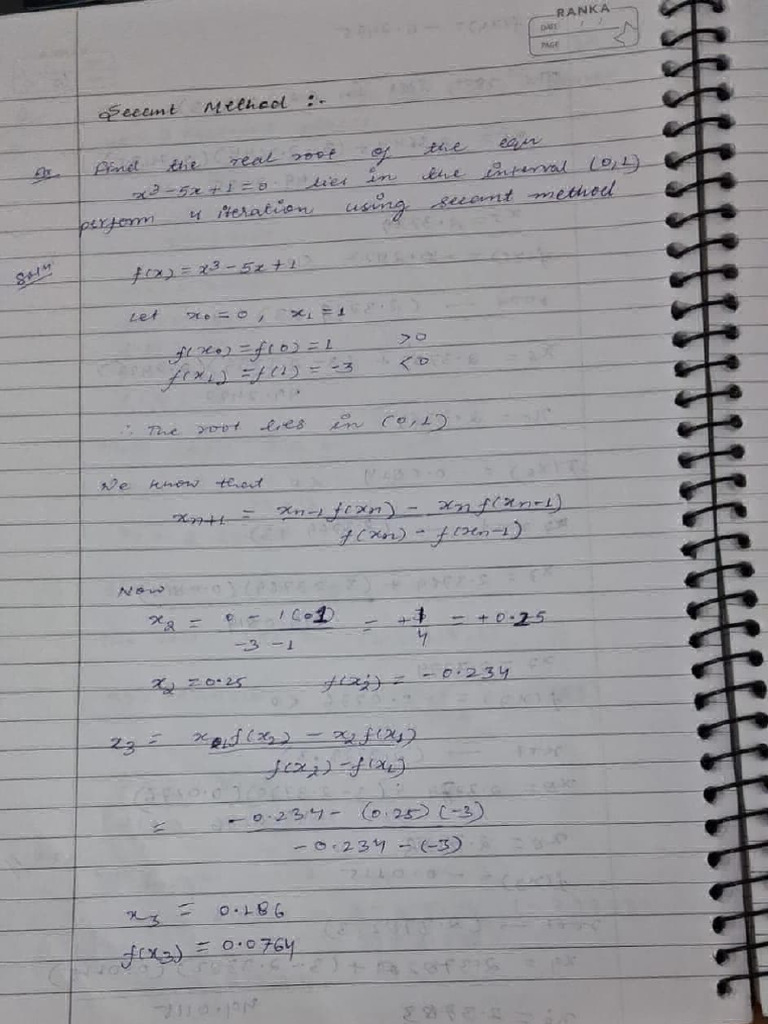 RANKA
DATE / /
PAGE
Secant Method :-
Find the real root of the eqn
x³-5x+1=0 lies in the interval (0,1)
perform 4 iteration using secant method
Solⁿ
f(x) = x³-5x+1
Let x₀=0, x₁=1
f(x₀) = f(0) = 1 >0
f(x₁) = f(1) = -3 <0
∴ The root lies in (0,1)
We know that
xn+1 = xn-1 f(xn) - xn f(xn-1)
f(xn) - f(xn-1)
Now
x₂ = 0 - 1(1) = +1 = +0.25
-3 -1 4
x₂ = 0.25 f(x₂) = -0.234
x₃ = x₁f(x₂) - x₂f(x₁)
f(x₂) - f(x₁)
= -0.234 - (0.25)(-3)
-0.234 - (-3)
x₃ = 0.186
f(x₃) = 0.0764